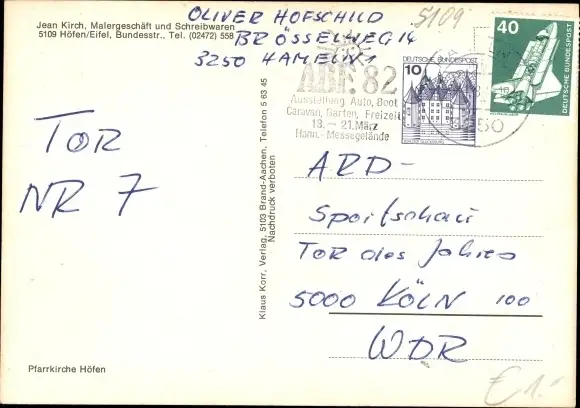 Jean Kirch, Malergeschäft und Schreibwaren
5109 Höfen/Eifel, Bundesstr., Tel. (02472) 558
OLIVER HOFSCHILD
BRÖSSELWEG 14
3250 HAMELN 1
5109
ABF. 82
Ausstellung Auto, Boot
Caravan, Garten, Freizeit
13. - 21. März
Hann.-Messegelände
10
DEUTSCHE BUNDESPOST
40
DEUTSCHE BUNDESPOST
TOR
NR 7
Klaus Korr, Verlag, 5103 Brand-Aachen, Telefon 5 63 45
Nachdruck verboten
ARD-
Sportschau
TOR des Jahres
5000 KÖLN 100
WDR
Pfarrkirche Höfen
€ 1.-